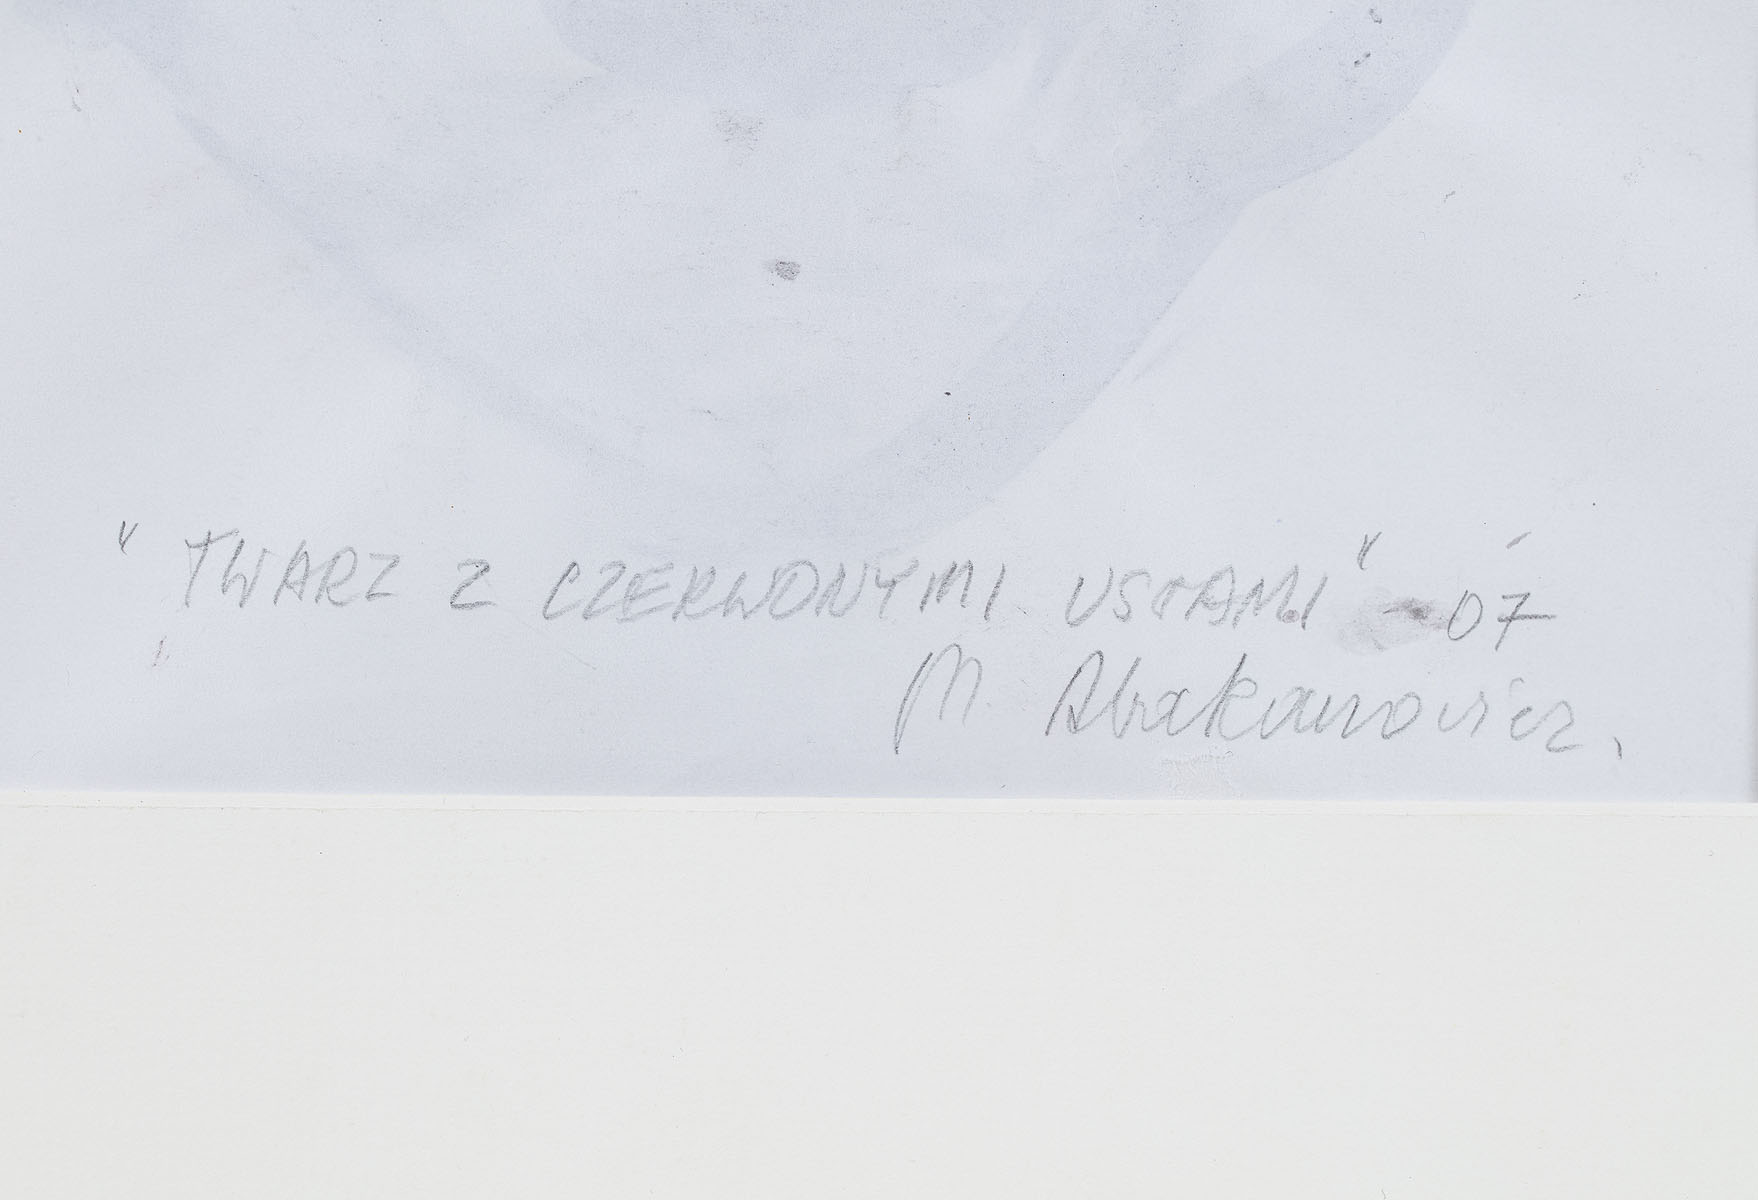 "TWARZ Z CZERWONYMI USTAMI" - 07
M. Abakanowicz.